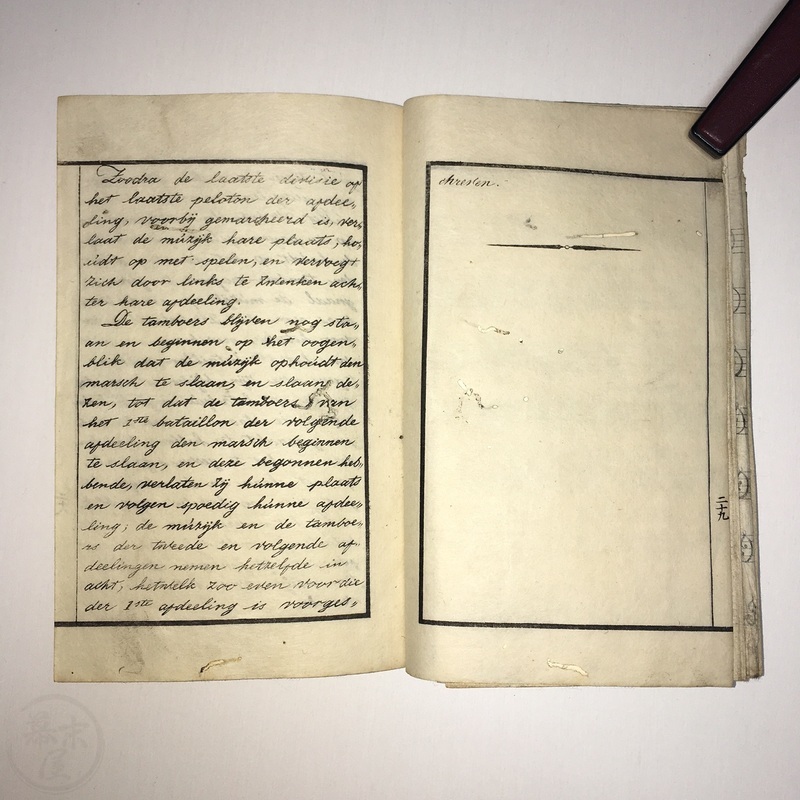 Zoodra de laatste divisie op
het laatste peloton der afdee„
ling, voorbij gemarcheerd is, ver„
laat de múzijk hare plaats, ho„
údt op met spelen, en vervoegt
zich door links te zwenken ach„
ter hare afdeeling.
De tamboers blijven nog sta„
an en beginnen op het oogen„
blik dat de múzijk ophoúdt den
marsch te slaan, en slaan de„
zen, tot dat de tamboers van
het 1ste bataillon der volgende
afdeeling den marsch beginnen
te slaan, en deze begonnen heb„
bende, verlaten zij húnne plaats
en volgen spoedig húnne afdee„
ling; de múzijk en de tamboe„
rs der tweede en volgende af„
deelingen nemen hetzelfde in
acht, hetwelk zoo even voor die
der 1ste afdeeling is voorges„
chreven.
二十九
幕末屋